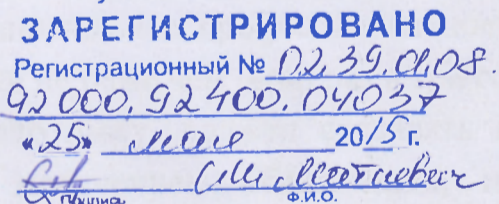 ЗАРЕГИСТРИРОВАНО
Регистрационный № 02.39.01.08.
92000.92400.04037
«25» мая 2015 г.
Матиевич
Ф.И.О.